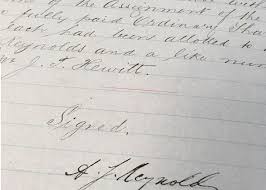 of the Assignment of the
fully paid Ordinary Sha
each had been allotted to
Reynolds and a like num
J. T. Hewitt.
Signed.
A. J. Reynolds